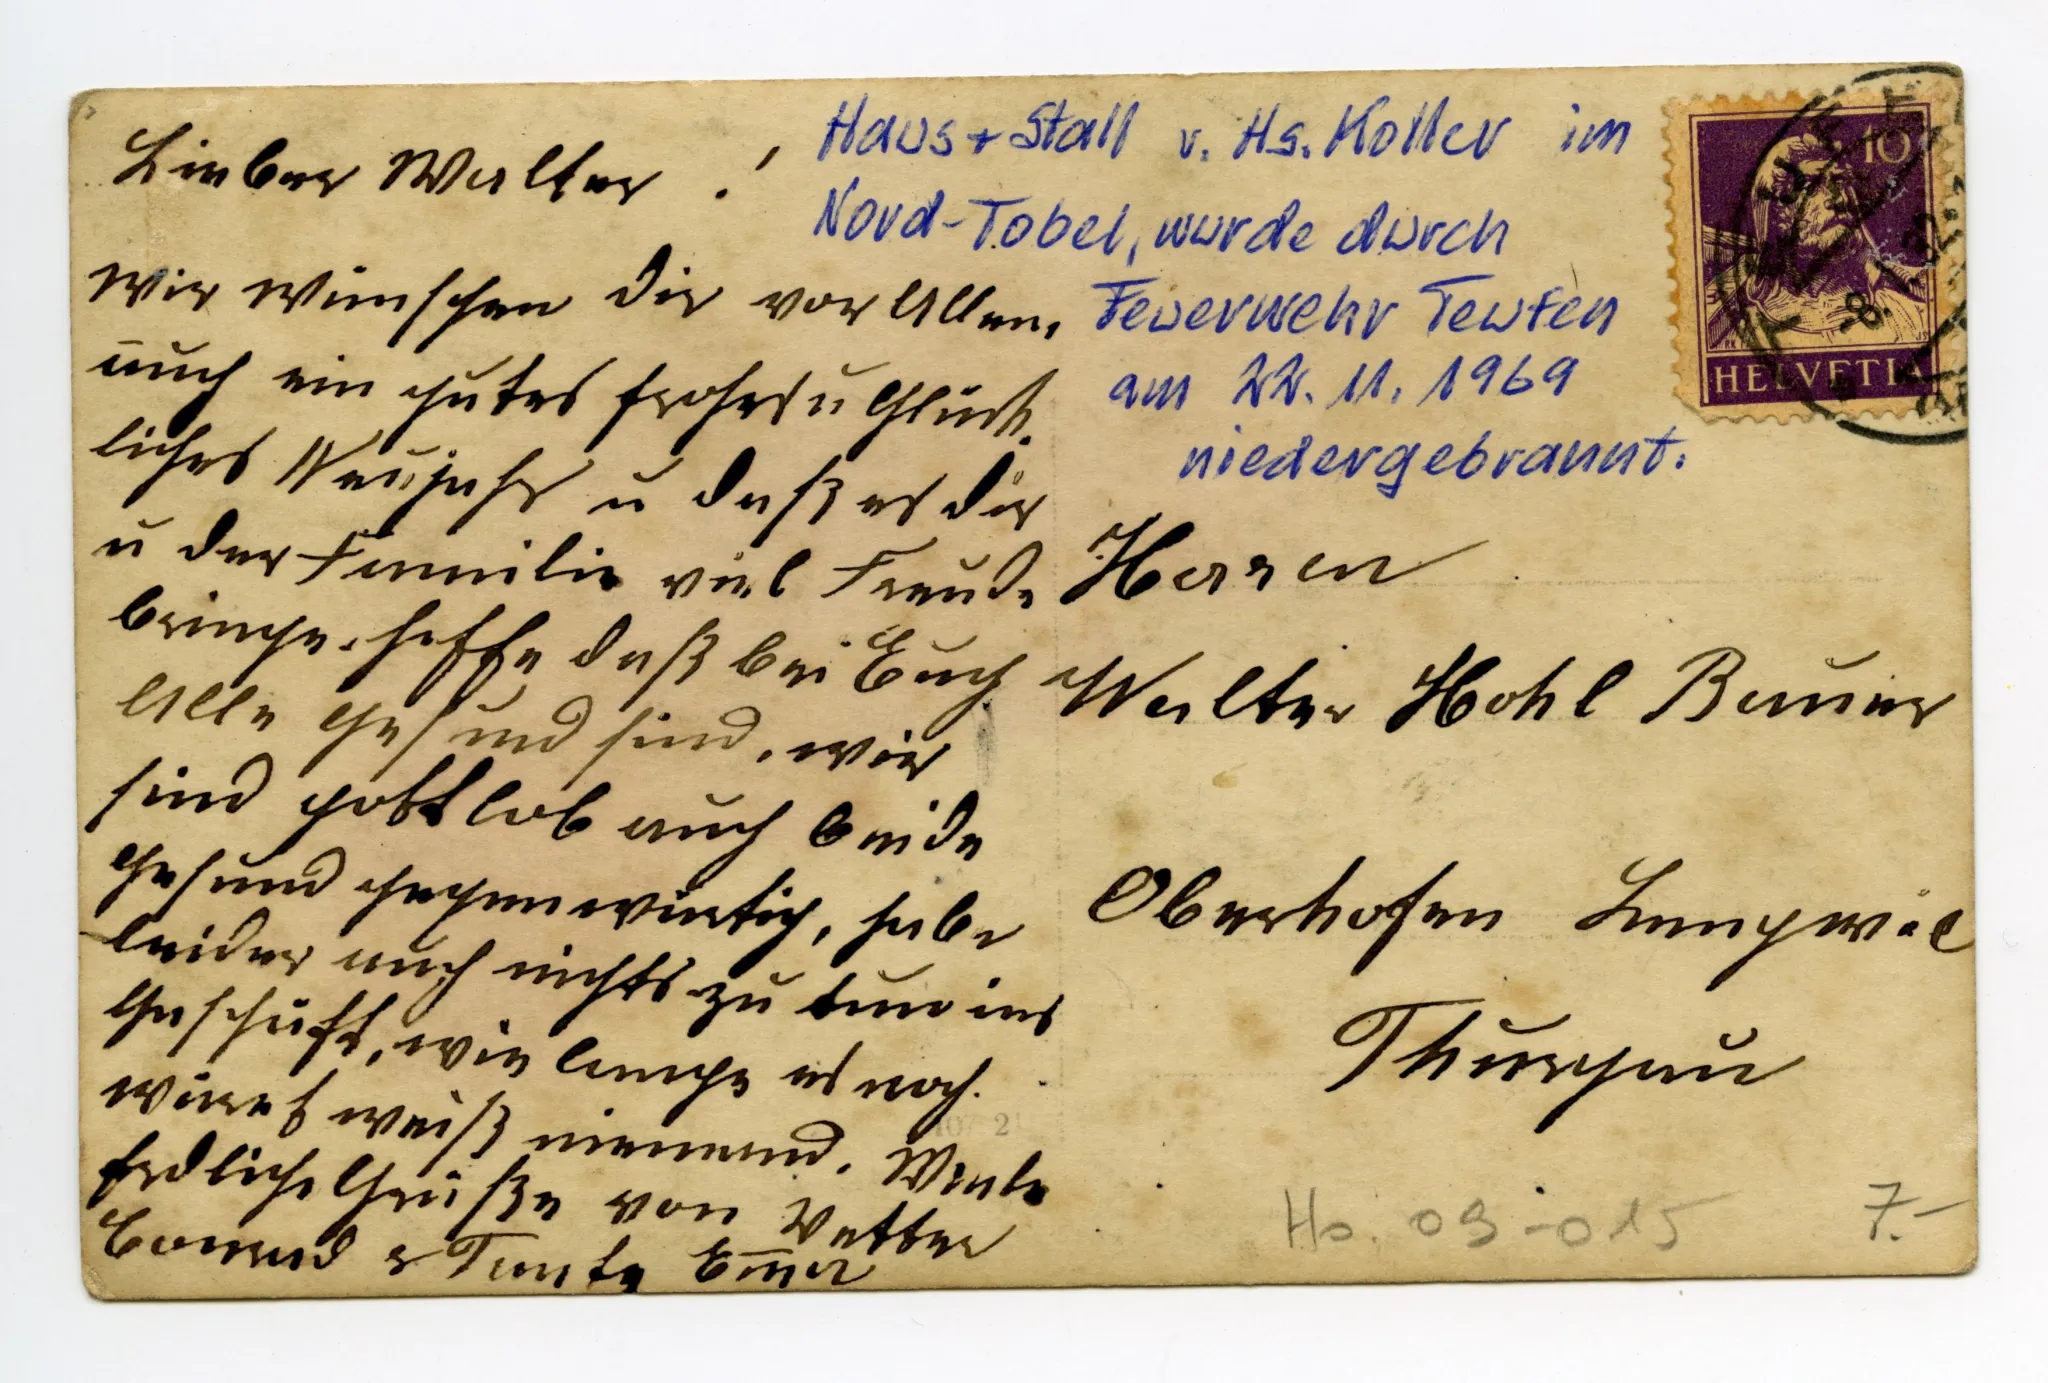 Lieber Walter !
Wir wünschen dir vor Allem,
auch ein gutes frohes u Glück-
liches Neujahr u daß es dir
u der Familie viel Freude
bringe. hoffe daß bei Euch
Alle gesund sind, wir
sind gottlob auch beide
gesund gegenwärtig, habe
leider auch nichts zu tun im
Geschäft, wie lange es noch
währet weiß niemand. Viele
Grüße von Vetter
Conrad & Tante
Haus + Stall v. Hs. Koller im
Nord-Tobel, wurde durch
Feuerwehr Teufen
am 22. 11. 1969
niedergebrannt.
10
HELVETIA
Herren
Walter Hohl Bauer
Oberhofen Lengwil
Thurgau
Ho. 09-015
7.-